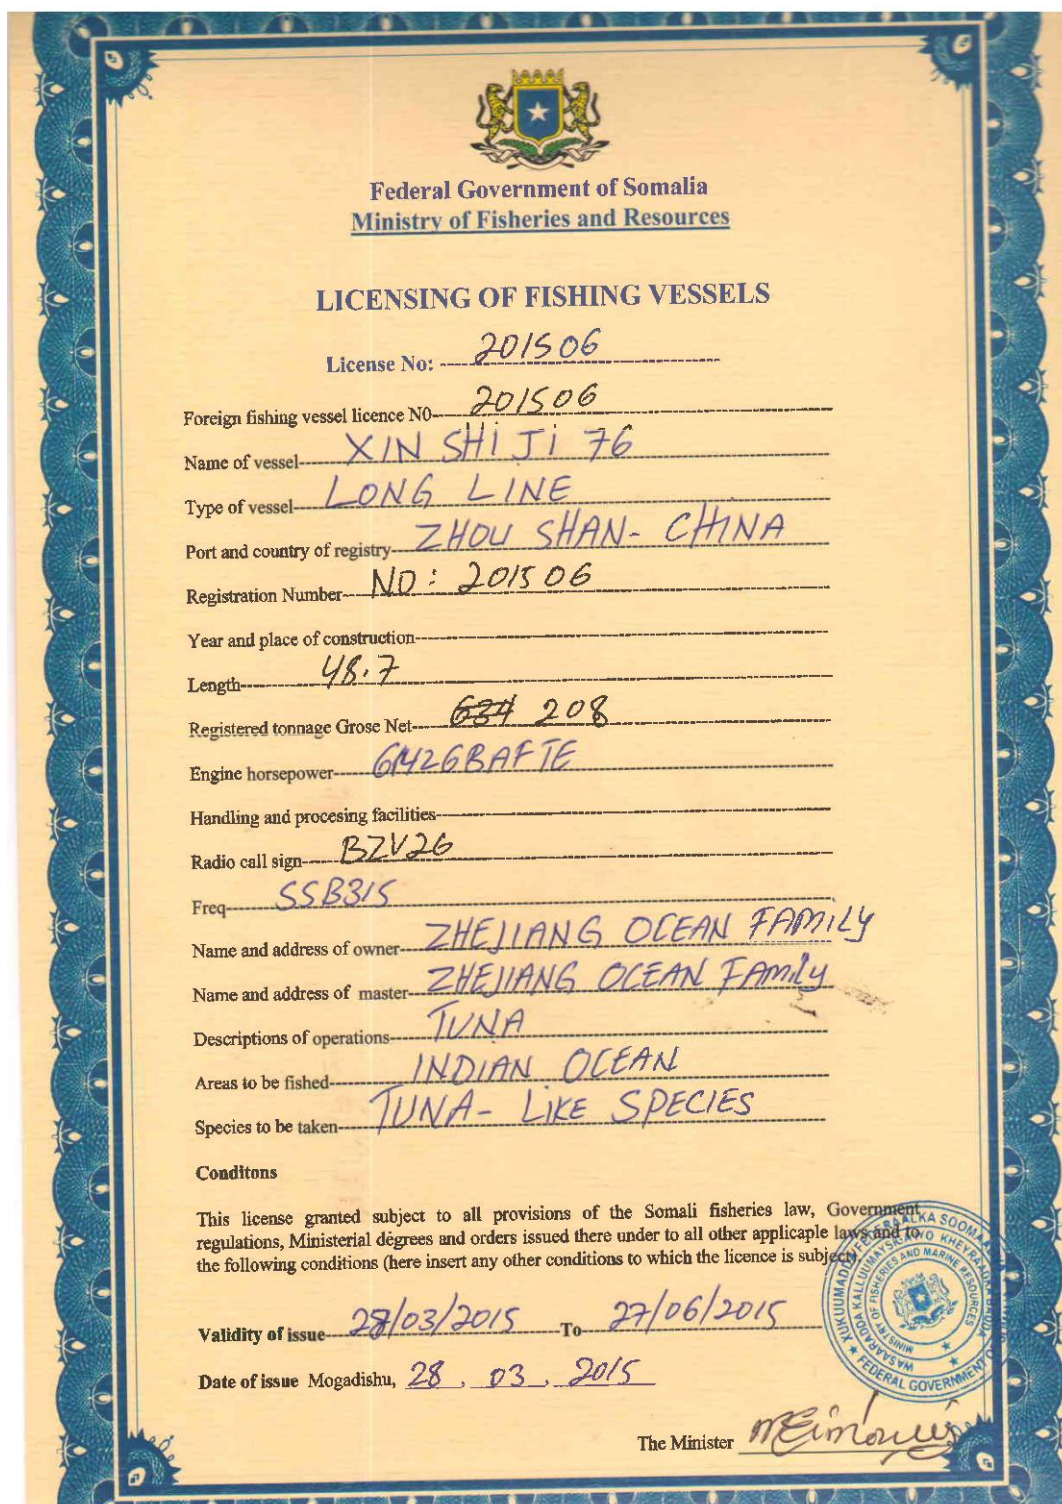 Federal Government of Somalia
Ministry of Fisheries and Resources
LICENSING OF FISHING VESSELS
License No: 201506
Foreign fishing vessel licence N0 201506
Name of vessel XIN SHI JI 76
Type of vessel LONG LINE
Port and country of registry ZHOU SHAN- CHINA
Registration Number NO: 201506
Year and place of construction
Length 48.7
Registered tonnage Grose Net 208
Engine horsepower 6M26BAFTE
Handling and procesing facilities
Radio call sign BZV26
Freq SSB315
Name and address of owner ZHEJIANG OCEAN FAMILY
Name and address of master ZHEJIANG OCEAN FAMILY
Descriptions of operations TUNA
Areas to be fished INDIAN OCEAN
Species to be taken TUNA- LIKE SPECIES
Conditons
This license granted subject to all provisions of the Somali fisheries law, Government
regulations, Ministerial degrees and orders issued there under to all other applicaple laws and to
the following conditions (here insert any other conditions to which the licence is subject).
Validity of issue 28/03/2015 To 27/06/2015
Date of issue Mogadishu, 28 . 03 . 2015
The Minister
MINISTRY OF FISHERIES AND MARINE RESOURCES